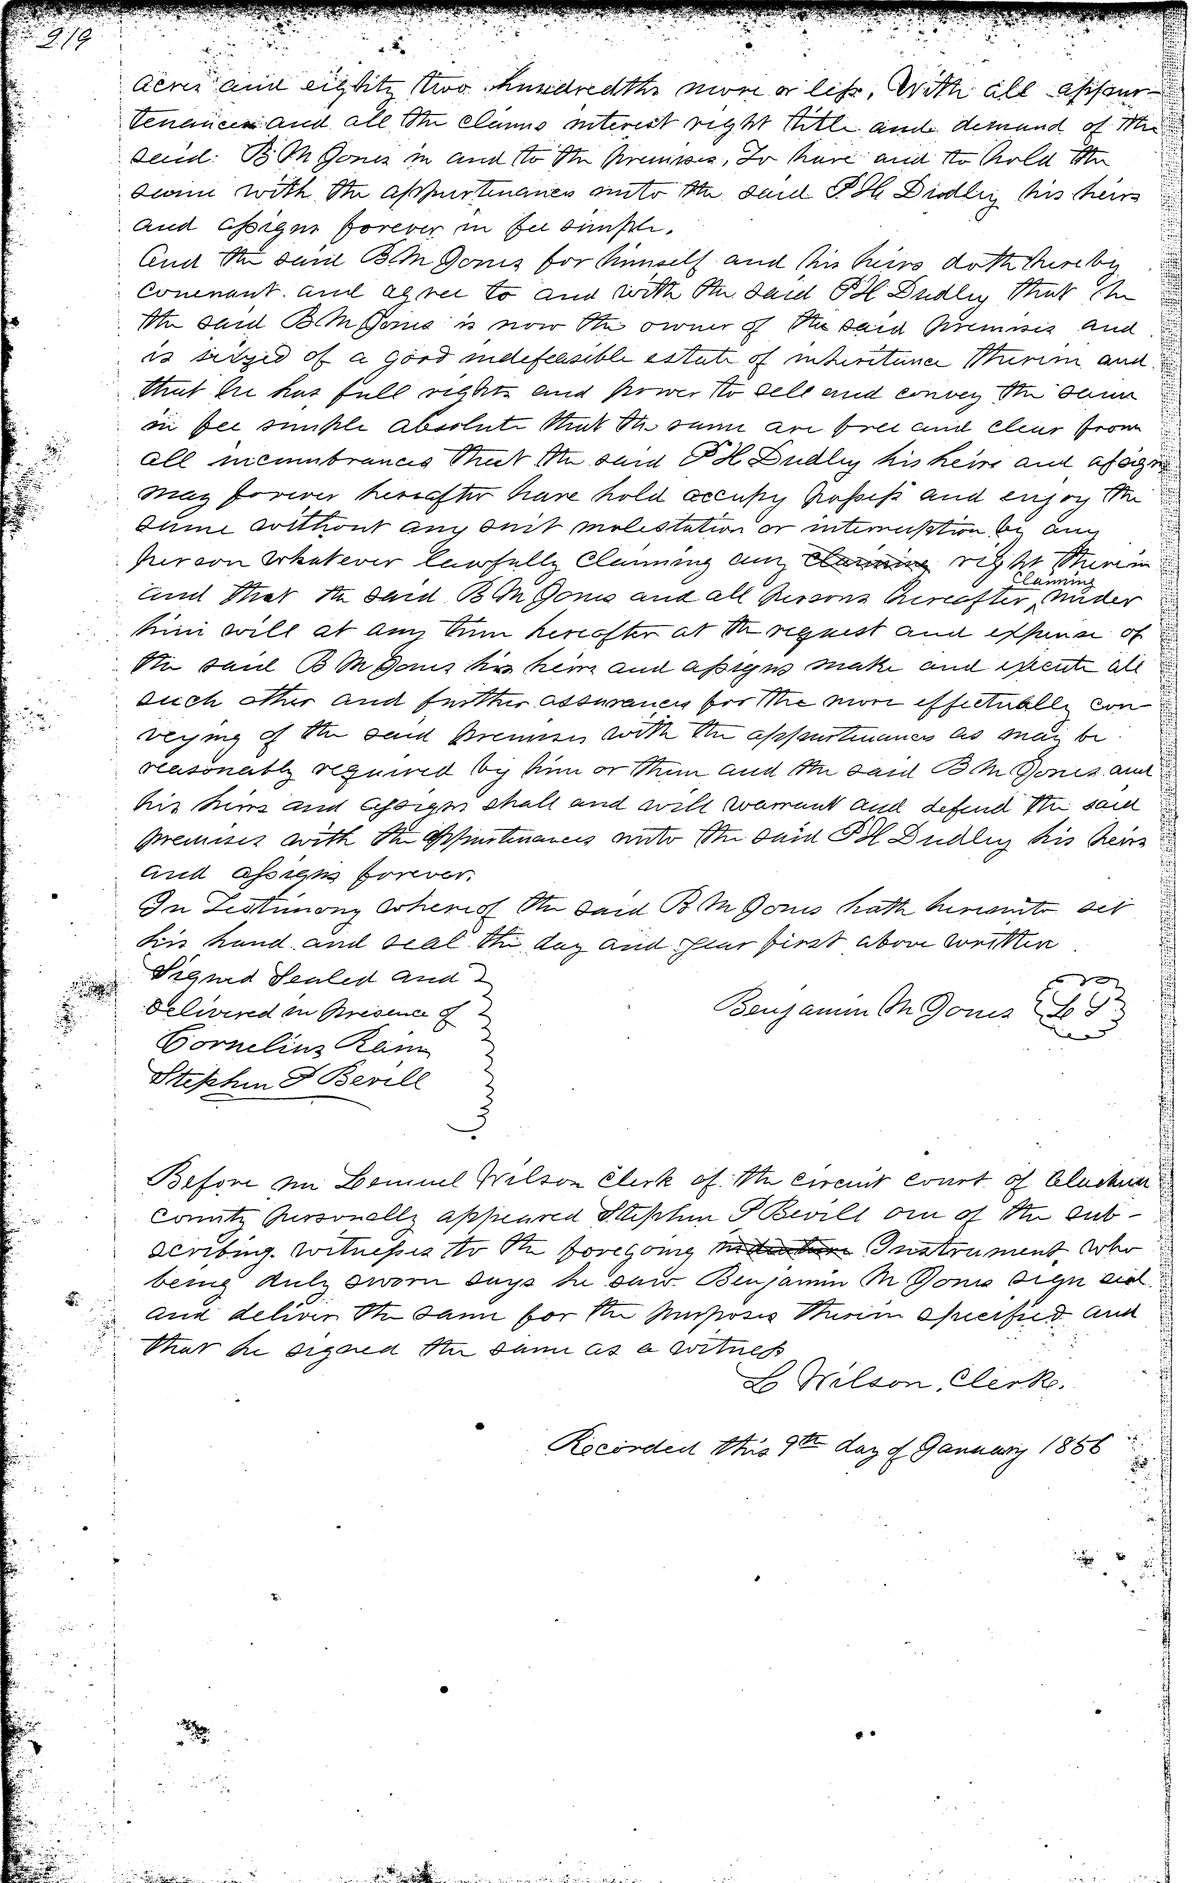 219
acres and eighty two hundredths more or less, With all appur-
tenances and all the claims interest right title and demand of the
said B M Jones in and to the premises, To have and to hold the
same with the appurtenances unto the said P H Dudley his heirs
and assigns forever in fee simple.
And the said B M Jones for himself and his heirs doth hereby
covenant and agree to and with the said P H Dudley that he
the said B M Jones is now the owner of the said premises and
is seized of a good indefeasible estate of inheritance therein and
that he has full rights and power to sell and convey the same
in fee simple absolute that the same are free and clear from
all incumbrances that the said P H Dudley his heirs and assigns
may forever hereafter have hold occupy possess and enjoy the
same without any suit molestation or interruption by any
person whatever lawfully claiming any claiming right therein
and that the said B M Jones and all persons hereafter claiming under
him will at any time hereafter at the request and expense of
the said B M Jones his heirs and assigns make and execute all
such other and further assurances for the more effectually con-
veying of the said premises with the appurtenances as may be
reasonably required by him or them and the said B M Jones and
his heirs and assigns shall and will warrant and defend the said
premises with the appurtenances unto the said P H Dudley his heirs
and assigns forever.
In Testimony whereof the said B M Jones hath hereunto set
his hand and seal the day and year first above written
Signed Sealed and
delivered in presence of
Benjamin M Jones L S
Cornelius Rain
Stephen P Bevill
Before me Lemuel Wilson Clerk of the circuit court of Alachua
county personally appeared Stephen P Bevill one of the sub-
scribing witnesses to the foregoing indenture Instrument who
being duly sworn says he saw Benjamin M Jones sign seal
and deliver the same for the purposes therein specified and
that he signed the same as a witness
L Wilson, Clerk.
Recorded this 9th day of January 1856